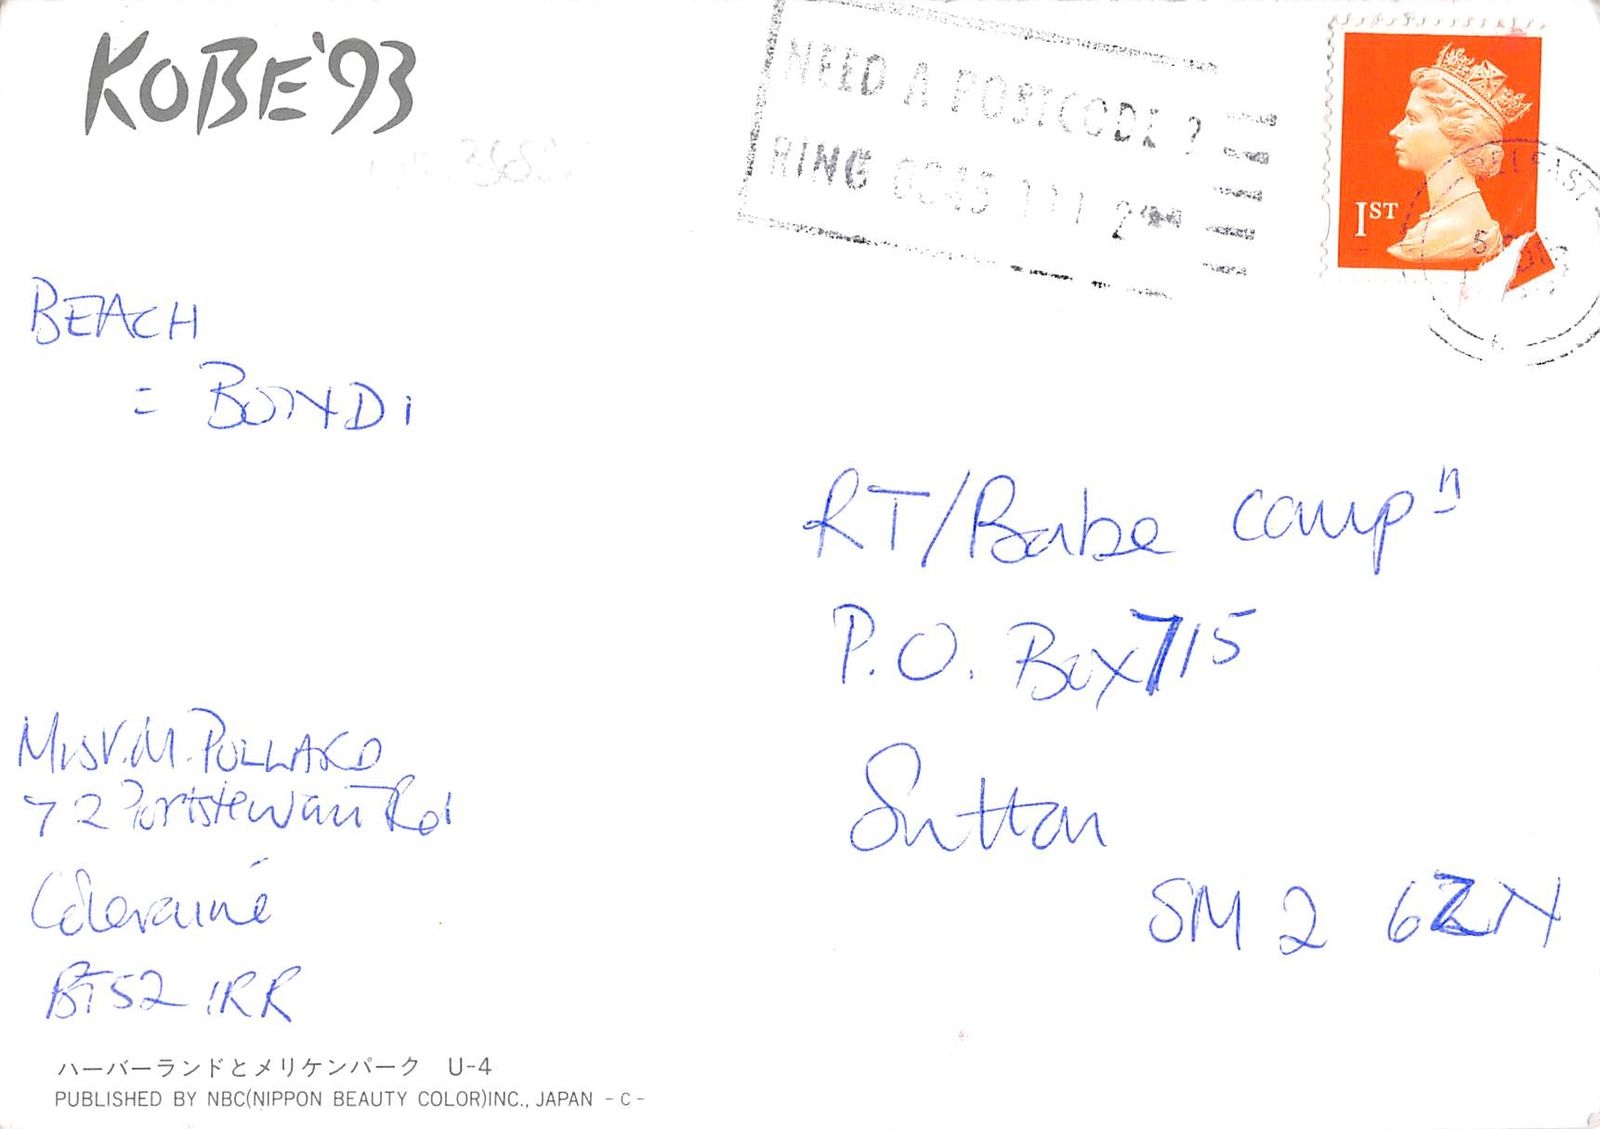 KOBE'93
NEED A POSTCODE ?
RING 0345 111 222
1ST
BELFAST
BEACH
= BONDI
RT/Babe Campn
P.O. Box 715
Sutton
SM2 6ZN
M. POLLARD
72 Portstewart Rd
Coleraine
BT52 1RR
ハーバーランドとメリケンパーク U-4
PUBLISHED BY NBC(NIPPON BEAUTY COLOR)INC., JAPAN - C -